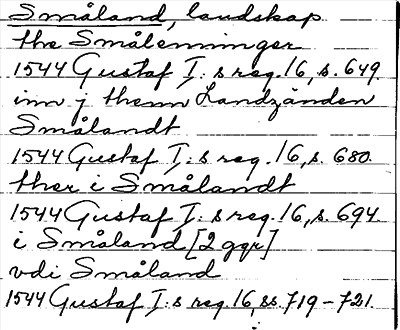 Småland, landskap
the Smålenninger
1544 Gustaf I: s reg. 16, s. 649
inn j thenn Landzänden
Smålandt
1544 Gustaf I: s reg. 16, s. 680.
ther i Smålandt
1544 Gustaf I: s reg. 16, s. 694.
i Småland [2 ggr]
vdi Småland
1544 Gustaf I: s reg. 16, ss. 719-721.